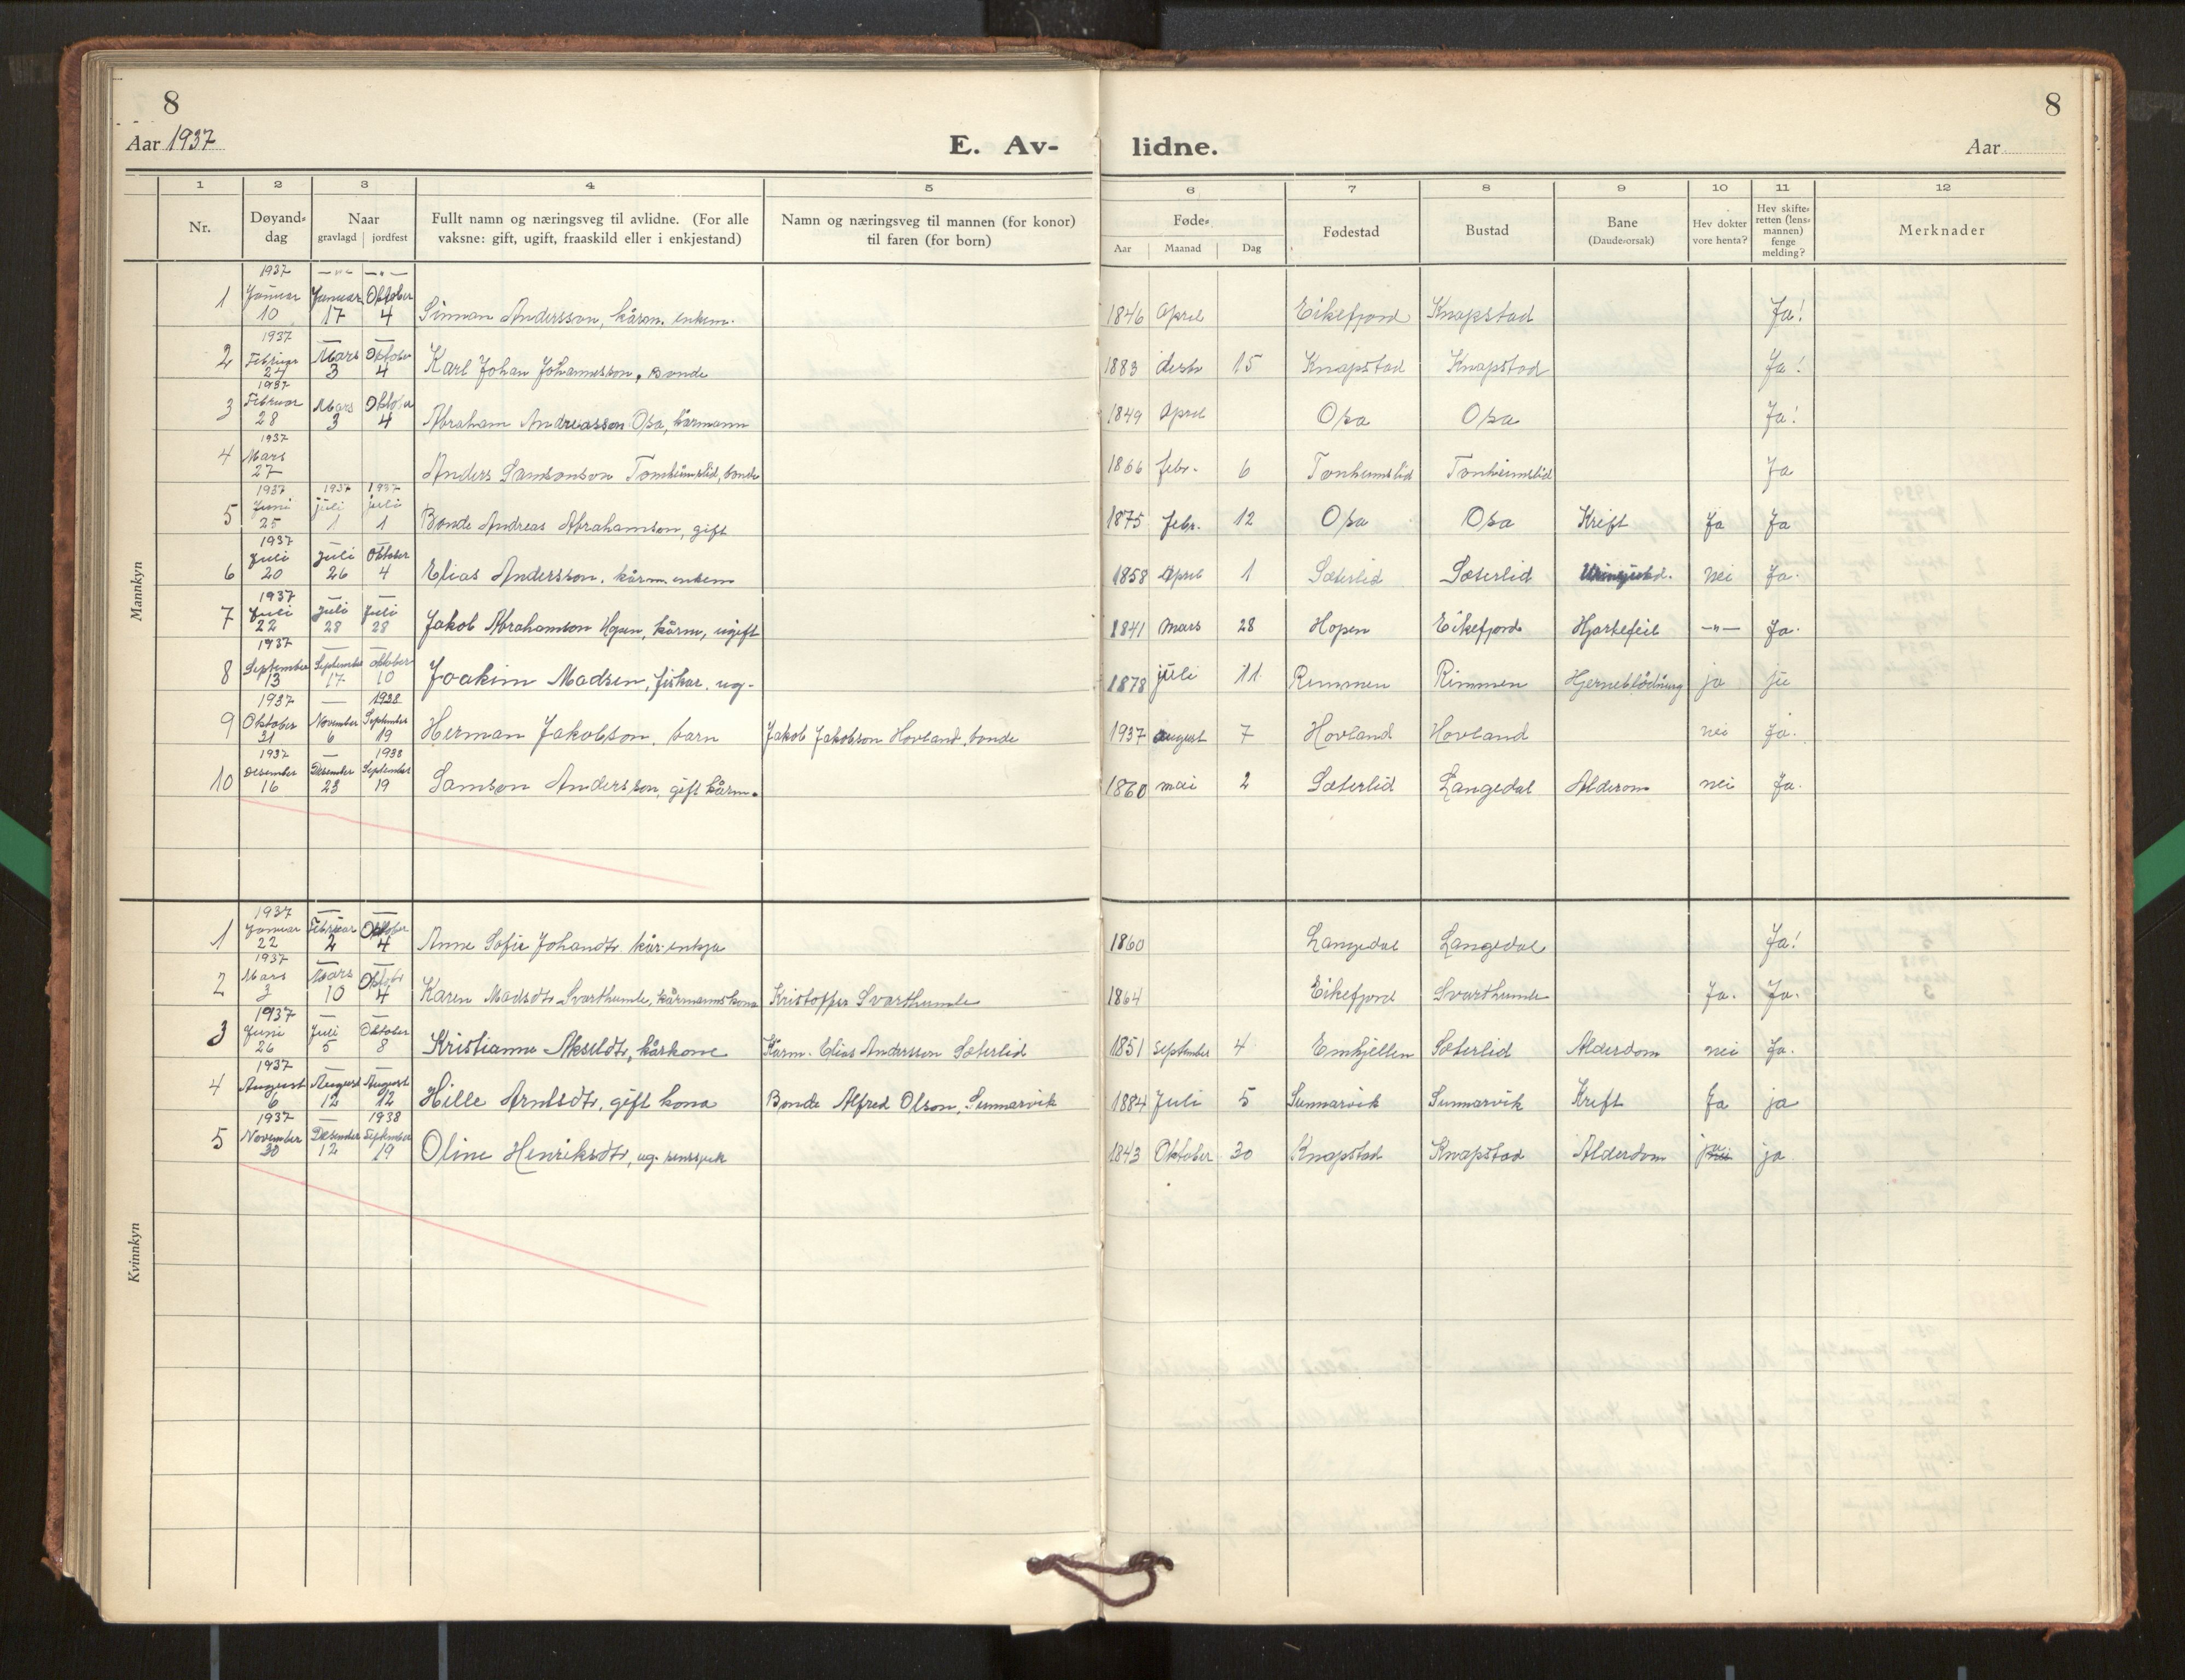 8
8
Aar 1937
E. Av-
lidne.
Aar
1 2 3 4 5 6 7 8 9 10 11 12
Nr.
Døyand-dag
Naar
gravlagd | jordfest
Fullt namn og næringsveg til avlidne. (For alle vaksne: gift, ugift, fraaskild eller i enkjestand)
Namn og næringsveg til mannen (for konor) til faren (for born)
Føde-
Aar Maanad Dag
Fødestad
Bustad
Bane (Daude-orsak)
Hev dokter vore henta?
Hev skifte-retten (lens-mannen) fenge melding?
Merknader
Mannkyn
1 1937 Januar 10 Januar 17 Oktober 4 Andersson, kårm. enkem. 1846 April Eikefjord Knapstad Ja!
2 1937 Februar 24 Mars 3 Oktober 4 Karl Johan Johannesson, Bonde 1883 desbr 15 Knapstad Knapstad Ja!
3 1937 Februar 28 Mars 3 Oktober 4 Abraham Andreasson Osa, kårmann 1849 April Osa Osa Ja!
4 1937 Mars 27 Anders Samsonson Tonheimslid, bonde 1866 febr. 6 Tonheimslid Tonheimslid Ja
5 1937 Juni 25 1937 juli 1 1937 juli 1 Bonde Andreas Abrahamson, gift 1875 febr. 12 Osa Osa Kreft Ja Ja
6 1937 Juli 20 Juli 26 Oktober 4 Elias Andersson, kårm. enkem 1858 April 1 Sæterlid Sæterlid nei Ja.
7 1937 Juli 22 Juli 28 Juli 28 Jakob Abrahamson Hopen, kårm, ugift 1841 Mars 28 Hopen Eikefjord Hjartefeil —"— Ja.
8 1937 September 13 September 17 Oktober 10 Joakim Madsen, fiskar, ug. 1878 juli 11 Rimmen Rimmen Hjerneblödning ja ja
9 1937 Oktober 31 November 6 1938 September 19 Herman Jakobson, barn Jakob Jakobson Hovland, bonde 1937 august 7 Hovland Hovland nei ja.
10 1937 Desember 16 Desember 23 1938 September 19 Samson Andersson, gift kårm. 1860 mai 2 Sæterlid Langedal Alderdom nei Ja.
Kvinnkyn
1 1937 Januar 22 Februar 2 Oktober 4 Anne Sofie Johandtr. kår-enkja 1860 Langedal Langedal Ja!
2 1937 Mars 3 Mars 10 Oktobr 4 Karen Madsdtr Svarthumle, kårmannskona Kristoffer Svarthumle 1864 Eikefjord Svarthumle Ja. Ja.
3 1937 Juni 26 Juli 5 Oktober 8 Kristianne Akseldtr, kårkone Kårm. Elias Andersson Sæterlid 1851 September 4 Emhjellen Sæterlid Alderdom nei Ja.
4 1937 August 6 August 12 August 12 Hille Arntsdtr, gift kona Bonde Alfred Olson, Sunnarvik 1884 Juli 5 Sunnarvik Sunnarvik Kreft Ja ja
5 1937 November 30 Desember 12 1938 September 19 Oline Henriksdtr, ug. 1843 Oktober 30 Knapstad Knapstad Alderdom ja